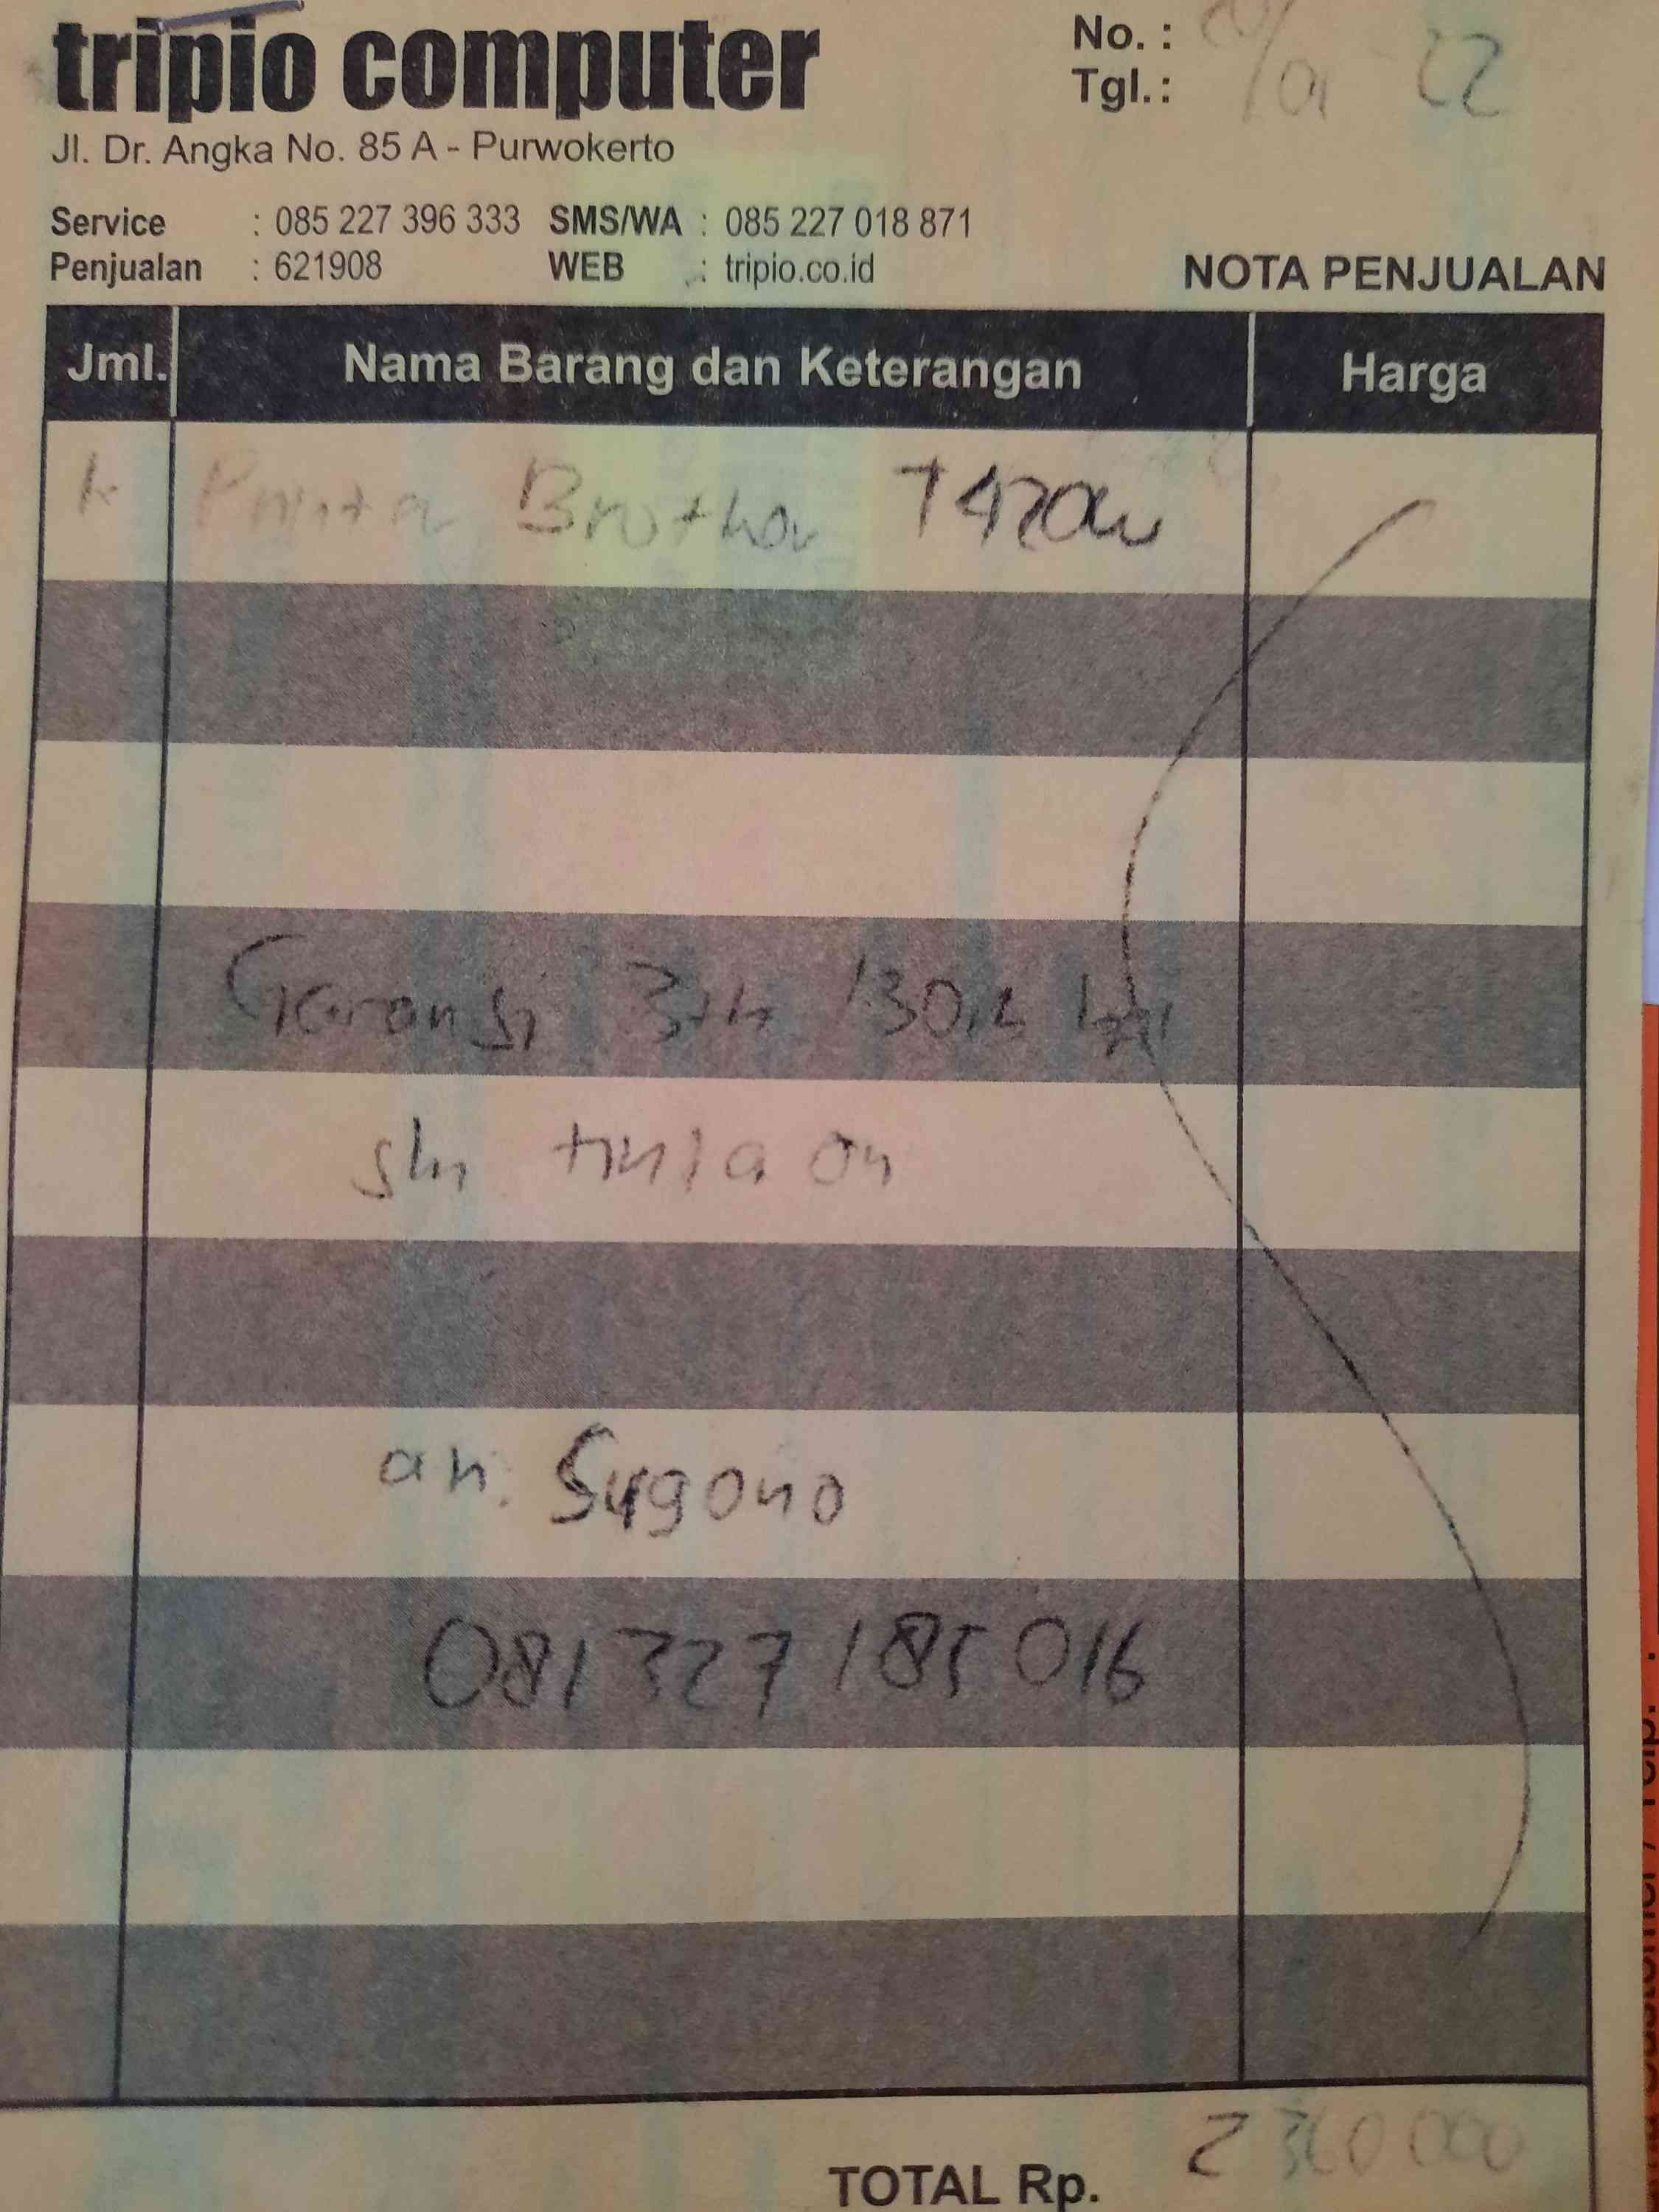 tripio computer
No. :
Tgl. : /01 22
Jl. Dr. Angka No. 85 A - Purwokerto
Service : 085 227 396 333 SMS/WA : 085 227 018 871
Penjualan : 621908 WEB : tripio.co.id
NOTA PENJUALAN
Jml. Nama Barang dan Keterangan Harga
Brother T420W
Garansi 3th /30rb
tinta ori
an. Sugono
081327 185 016
TOTAL Rp. 2360000